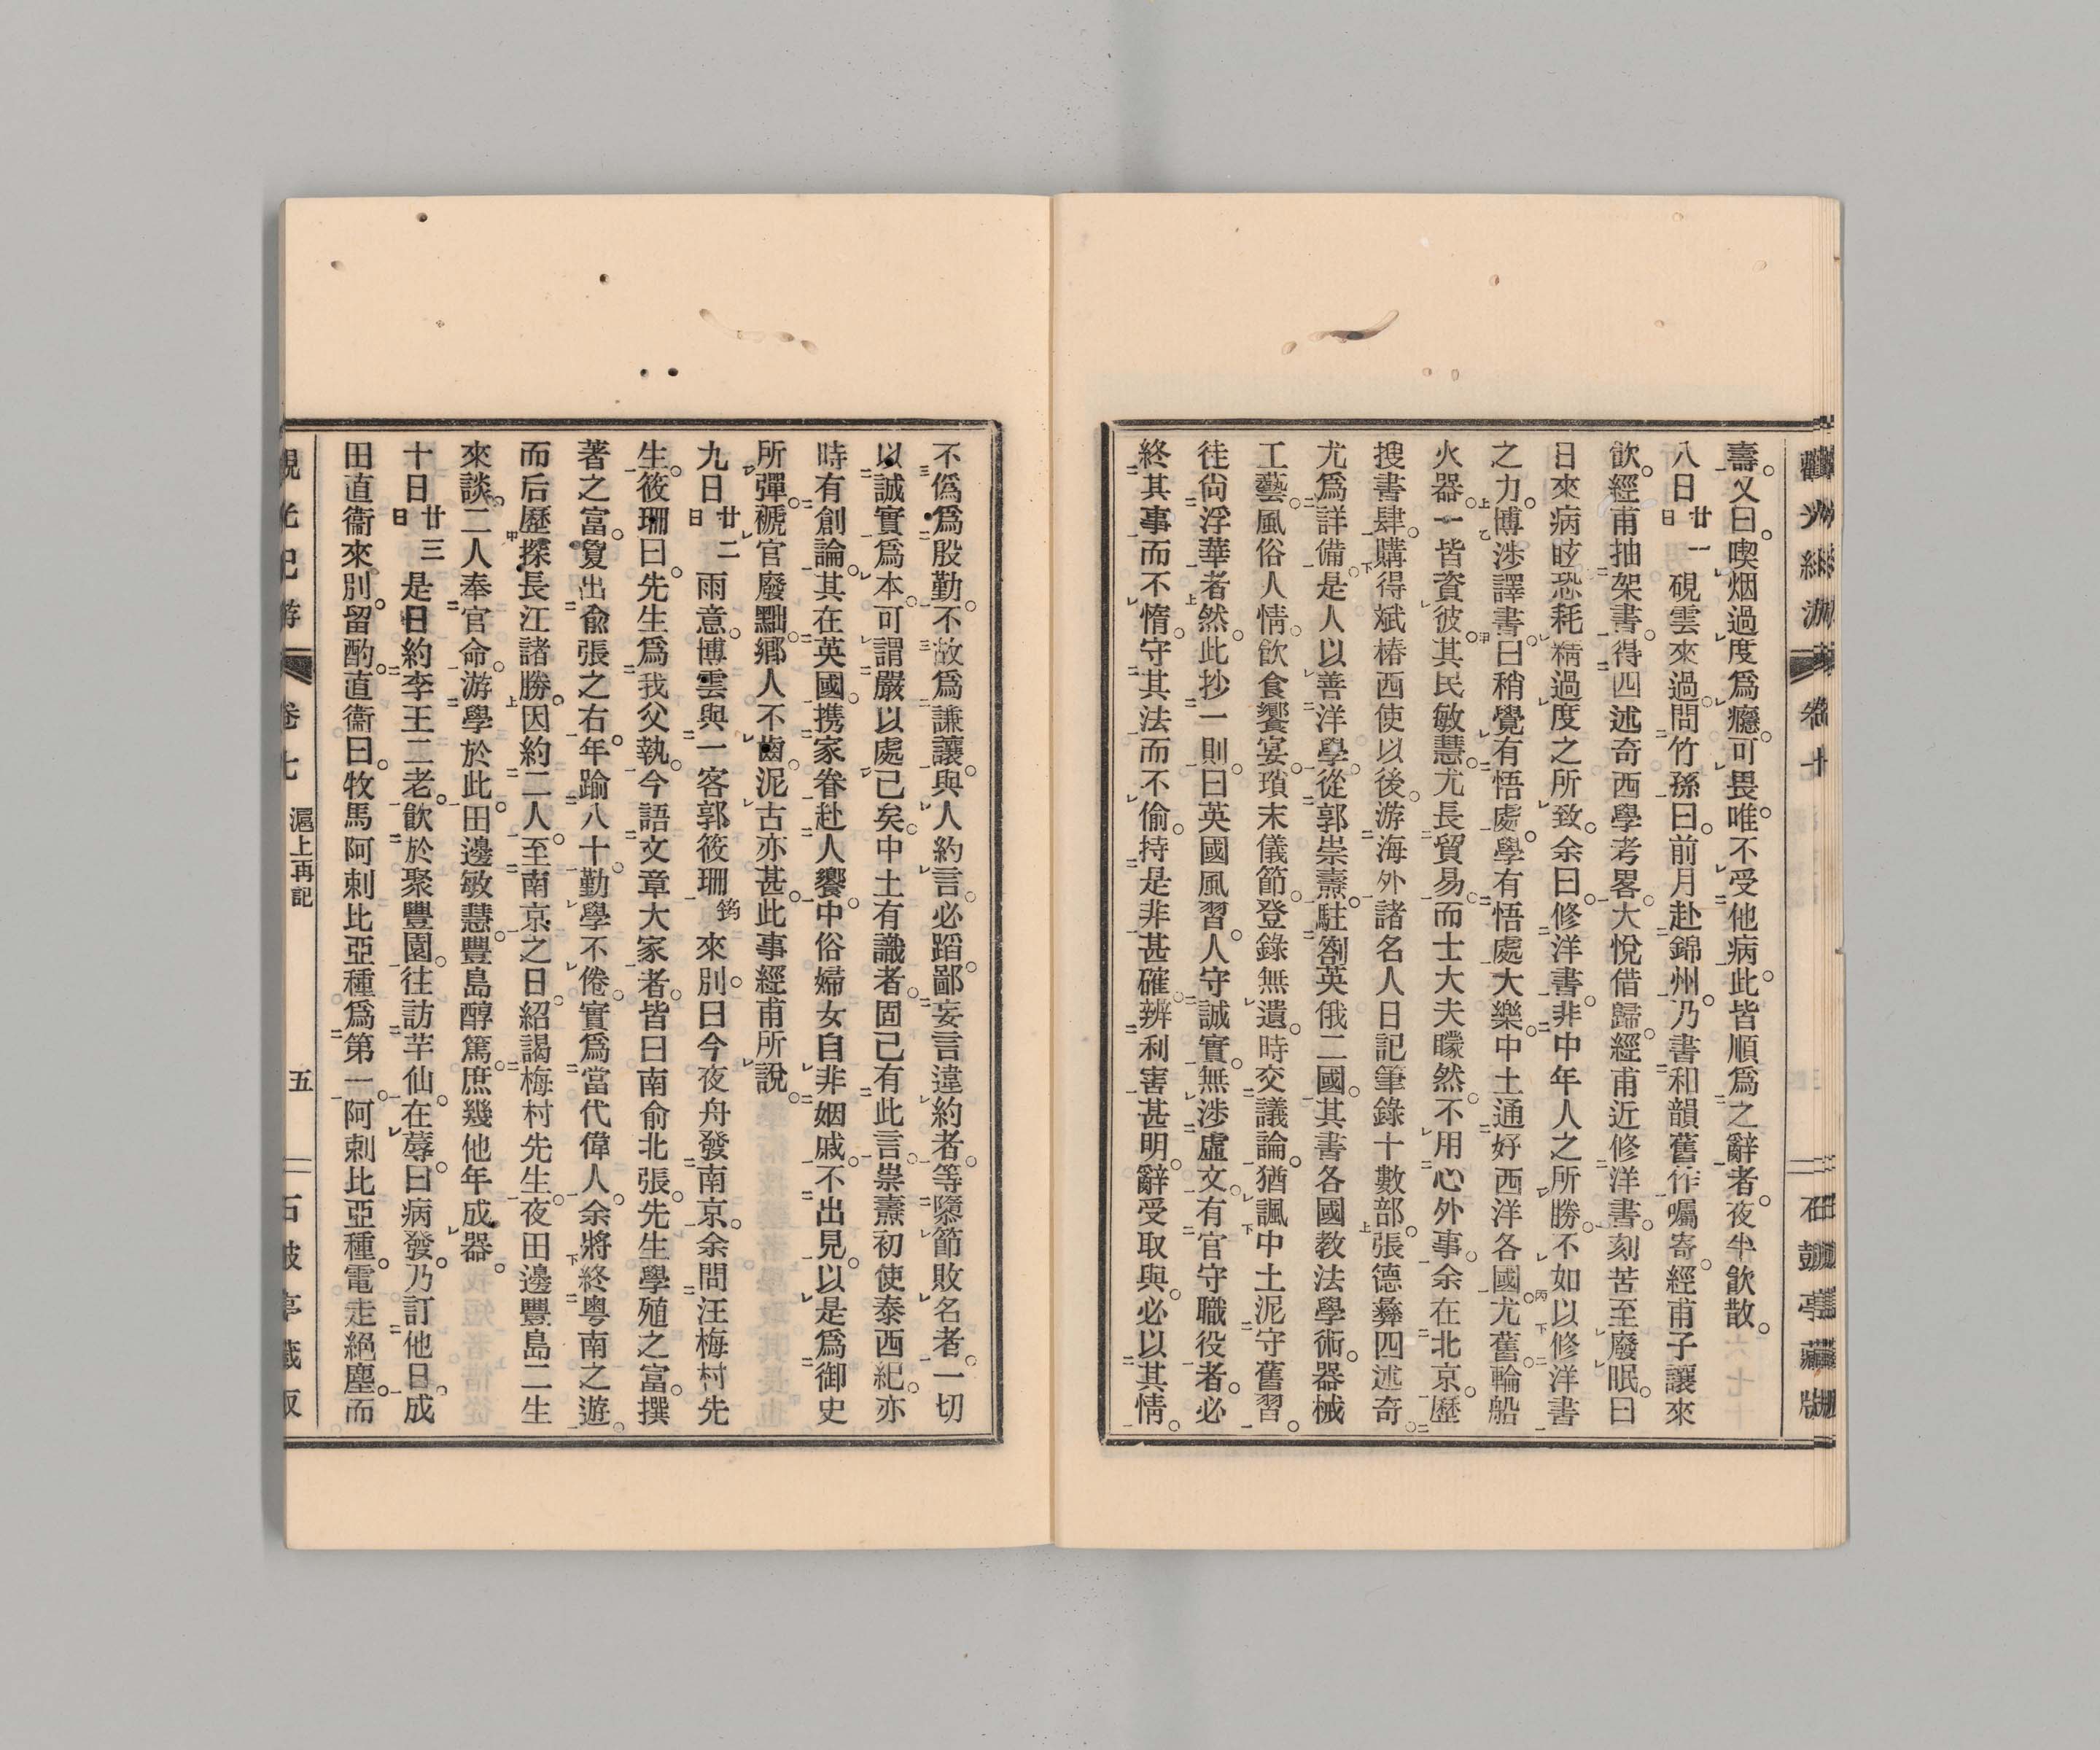 壽。又曰。喫烟過度爲癮。可畏。唯不受他病。此皆順爲之辭者。夜半飮散。
八日廿一日硯雲來過。問竹孫。曰。前月赴錦州。乃書和韻舊作囑寄。經甫子讓來
飮。經甫抽架書。得四述奇西學考畧。大悅借歸。經甫近修洋書。刻苦至廢眠。曰
日來病眩。恐耗精過度之所致。余曰。修洋書。非中年人之所勝。不如以修洋書
之力。博涉譯書。曰稍覺有悟處。學有悟處大樂。中土通好西洋各國。尤舊。輪船
火器。一皆資彼。其民敏慧。尤長貿易。而士大夫矇然。不用心外事。余在北京。歷
搜書肆。購得斌椿西使以後。游海外諸名人日記筆錄十數部。張德彝四述奇。
尤爲詳備。是人以善洋學。從郭崇燾。駐劄英俄二國。其書各國教法學術。器械
工藝。風俗人情。飮食饗宴。瑣末儀節。登錄無遺。時交議論。猶諷中土泥守舊習。
往尙浮華者然。此抄一則。曰英國風習。人守誠實。無涉虛文。有官守職役者。必
終其事而不惰。守其法而不偷。持是非甚確。辨利害甚明。辭受取與。必以其情。
卷
石
不僞爲殷勤。不故爲謙讓。與人約言。必蹈。鄙妄言違約者。等隳節敗名者。一切
以誠實爲本。可謂嚴以處己矣。中土有識者。固已有此言。崇燾初使泰西紀。亦
時有創論。其在英國。携家眷赴人饗。中俗婦女自非姻戚。不出見。以是爲御史
所彈。褫官廢黜。鄉人不齒。泥古亦甚。此事經甫所說。
九日廿二日雨意。博雲與一客郭筱珊筠來別。曰今夜舟發南京。余問汪梅村先
生。筱珊曰。先生爲我父執。今語文章大家者。皆曰南俞北張。先生學殖之富。撰
著之富。夐出俞張之右。年踰八十。勤學不倦。實爲當代偉人。余將終粵南之遊。
而后歷探長江諸勝。因約二人。至南京之日。紹謁梅村先生。夜田邊豐島二生
來談。二人奉官命。游學於此。田邊敏慧。豐島醇篤。庶幾他年成器。
十日廿三日是日約李王二老。飮於聚豐園。往訪芋仙。在蓐。曰病發。乃訂他日。成
田直衞來。別。留酌。直衞曰。牧馬阿剌比亞種爲第一。阿剌比亞種。電走絕塵。而
觀光紀游
卷七
滬上再記
五
石
亭藏